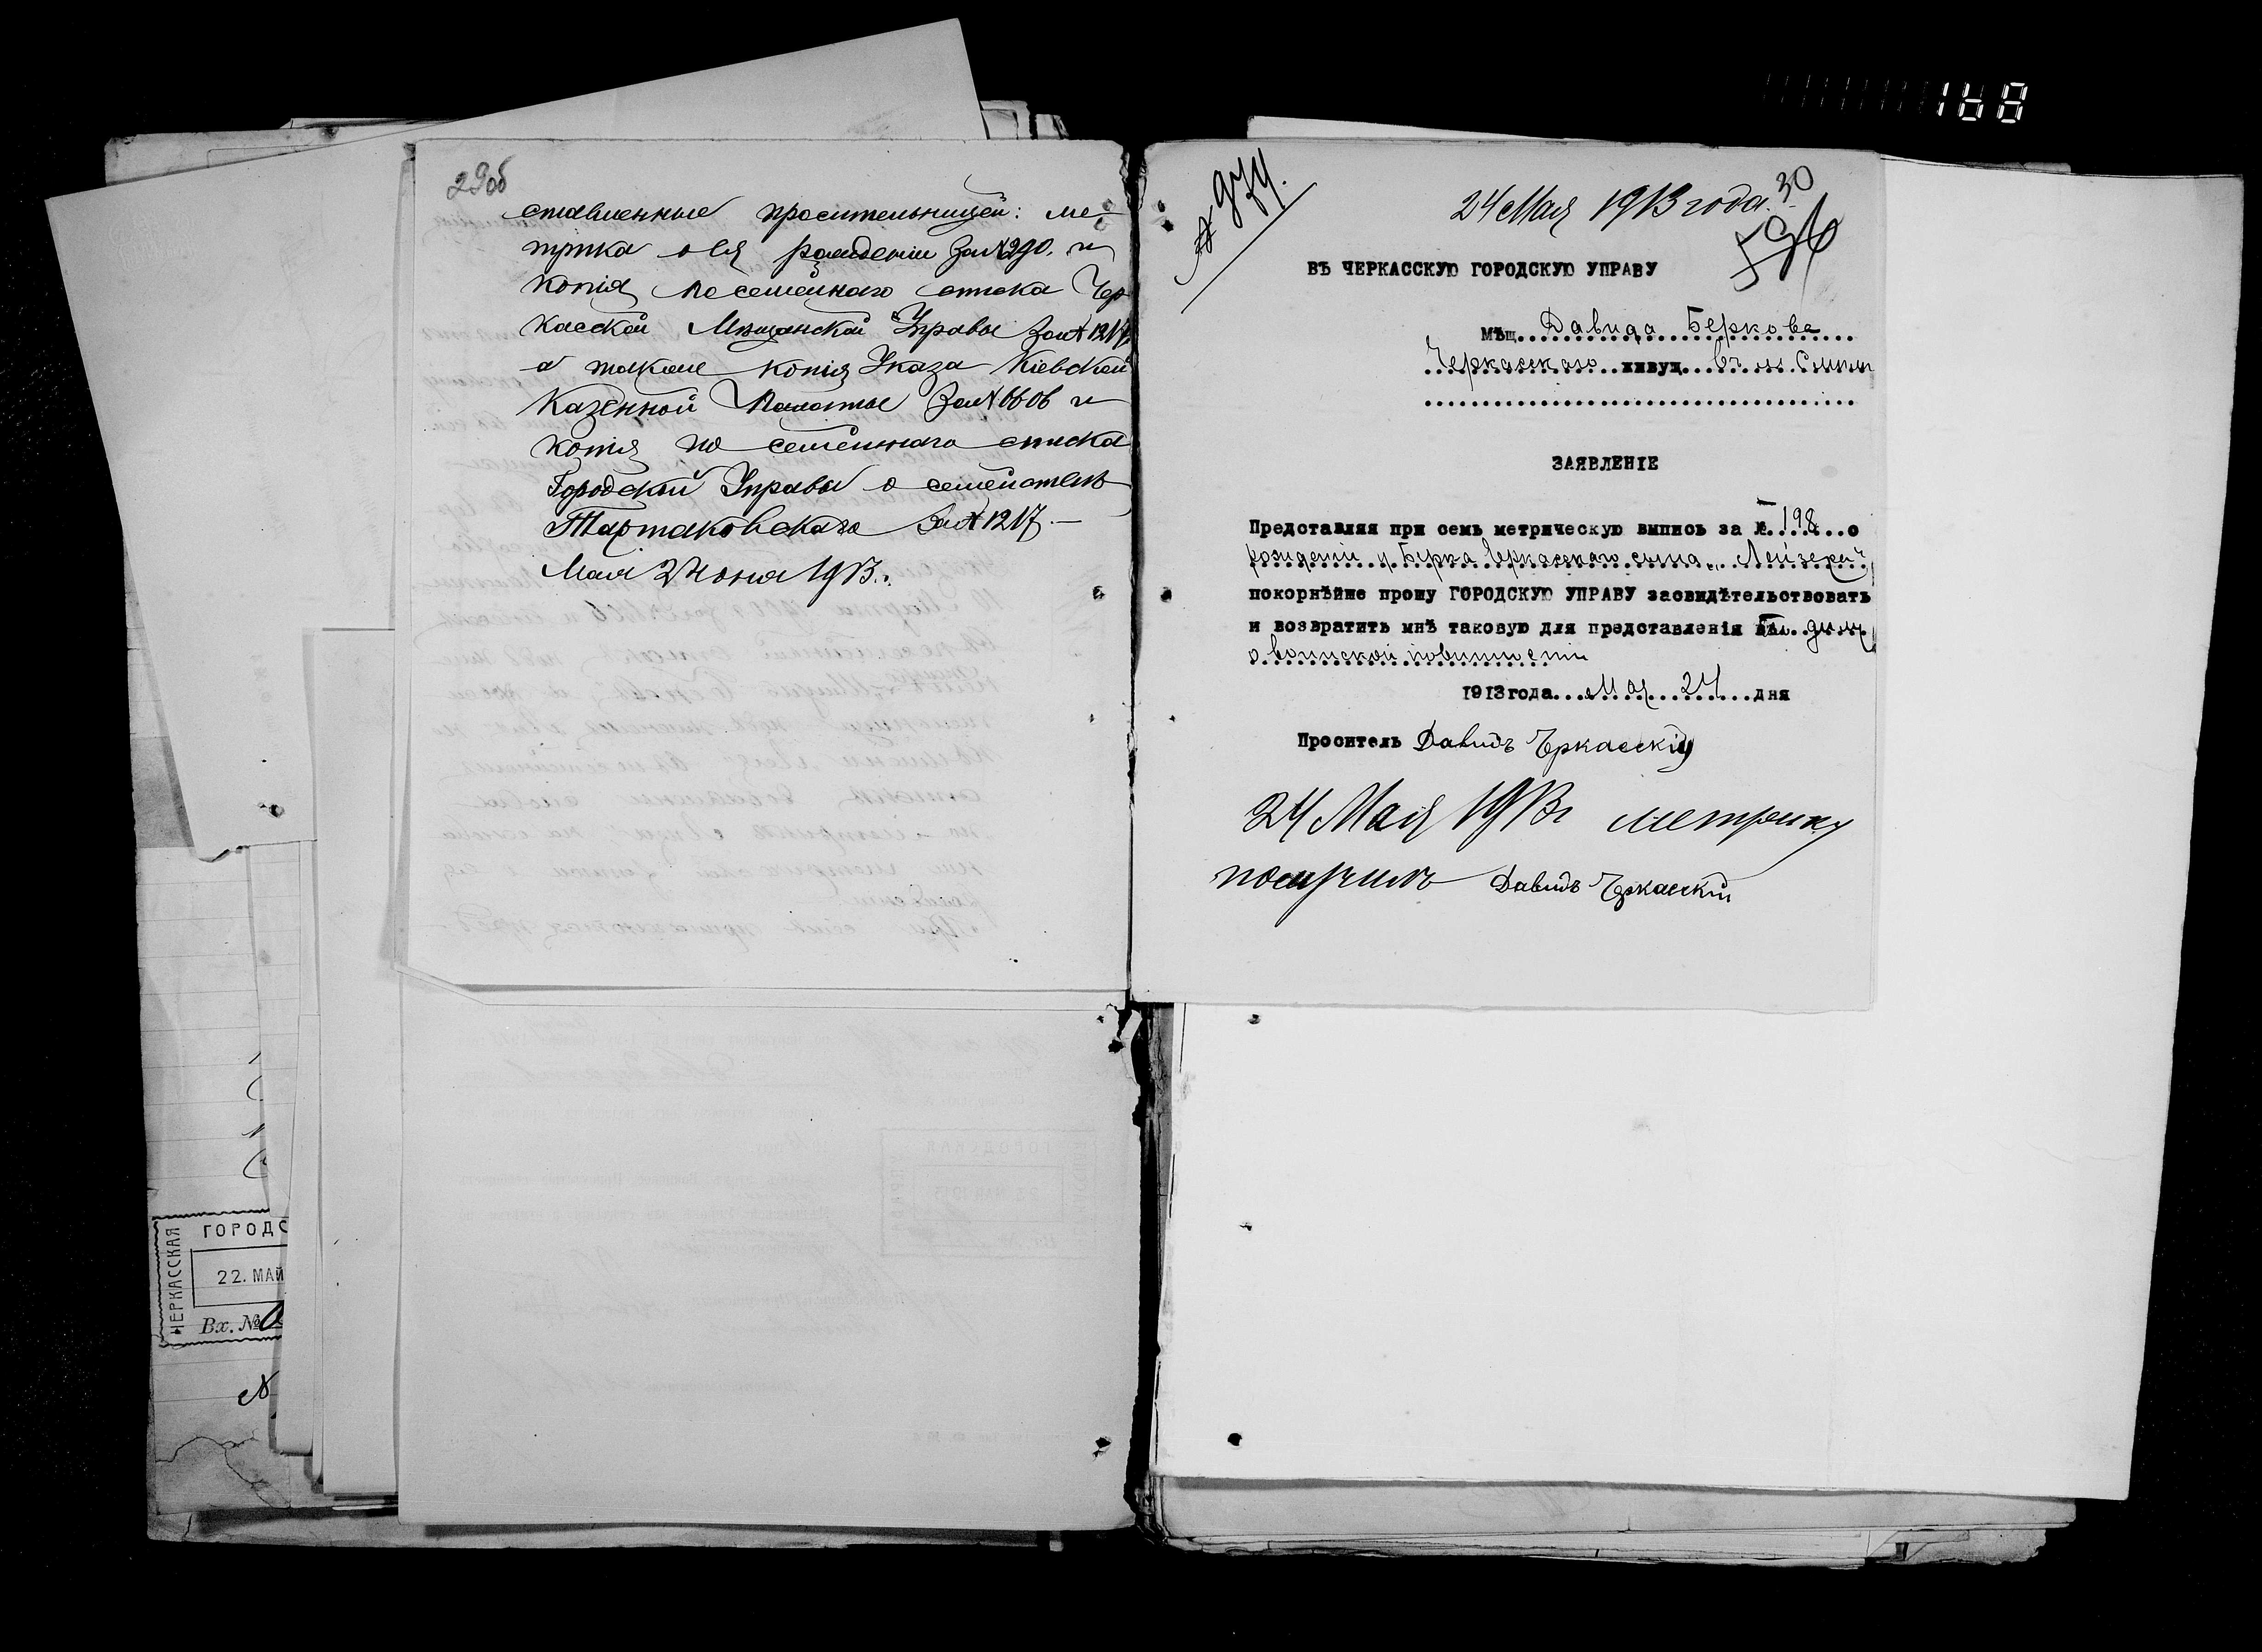 168
29об
ставленные просительницей: ме-
трика о ея рождении за № 290. и
копія посемейнаго списка Чер
касской Мѣщанской Управы за № 1217,
а также копія Указа Кіевской
Казенной Палаты за № 6606 и
копія по семейнаго списка
Городской Управы о семействѣ
Тартаковскаго за № 1217.—
Мая 24 дня 1913.
ГОРОДС
ЧЕРКАССКАЯ
22. МАЙ
Вх. №
№
№ 974.
24 Мая 1913 года.
30
596
ВЪ ЧЕРКАССКУЮ ГОРОДСКУЮ УПРАВУ
МѢЩ. Давида Беркова
Черкасскаго живущ. въ м. Смѣл
ЗАЯВЛЕНІЕ
Представляя при семъ метрическую выпись за №. 198 о
рожденіи у Берка Черкасскаго сына „Лейзеръ"
покорнѣйше прошу ГОРОДСКУЮ УПРАВУ засвидѣтельствовать
и возвратить мнѣ таковую для представленія
о воинской повинности
1913 года Мая 24 дня
Проситель Давидъ Черкасскій
24 Мая 1913 г метрику
получилъ Давидъ Черкасскій